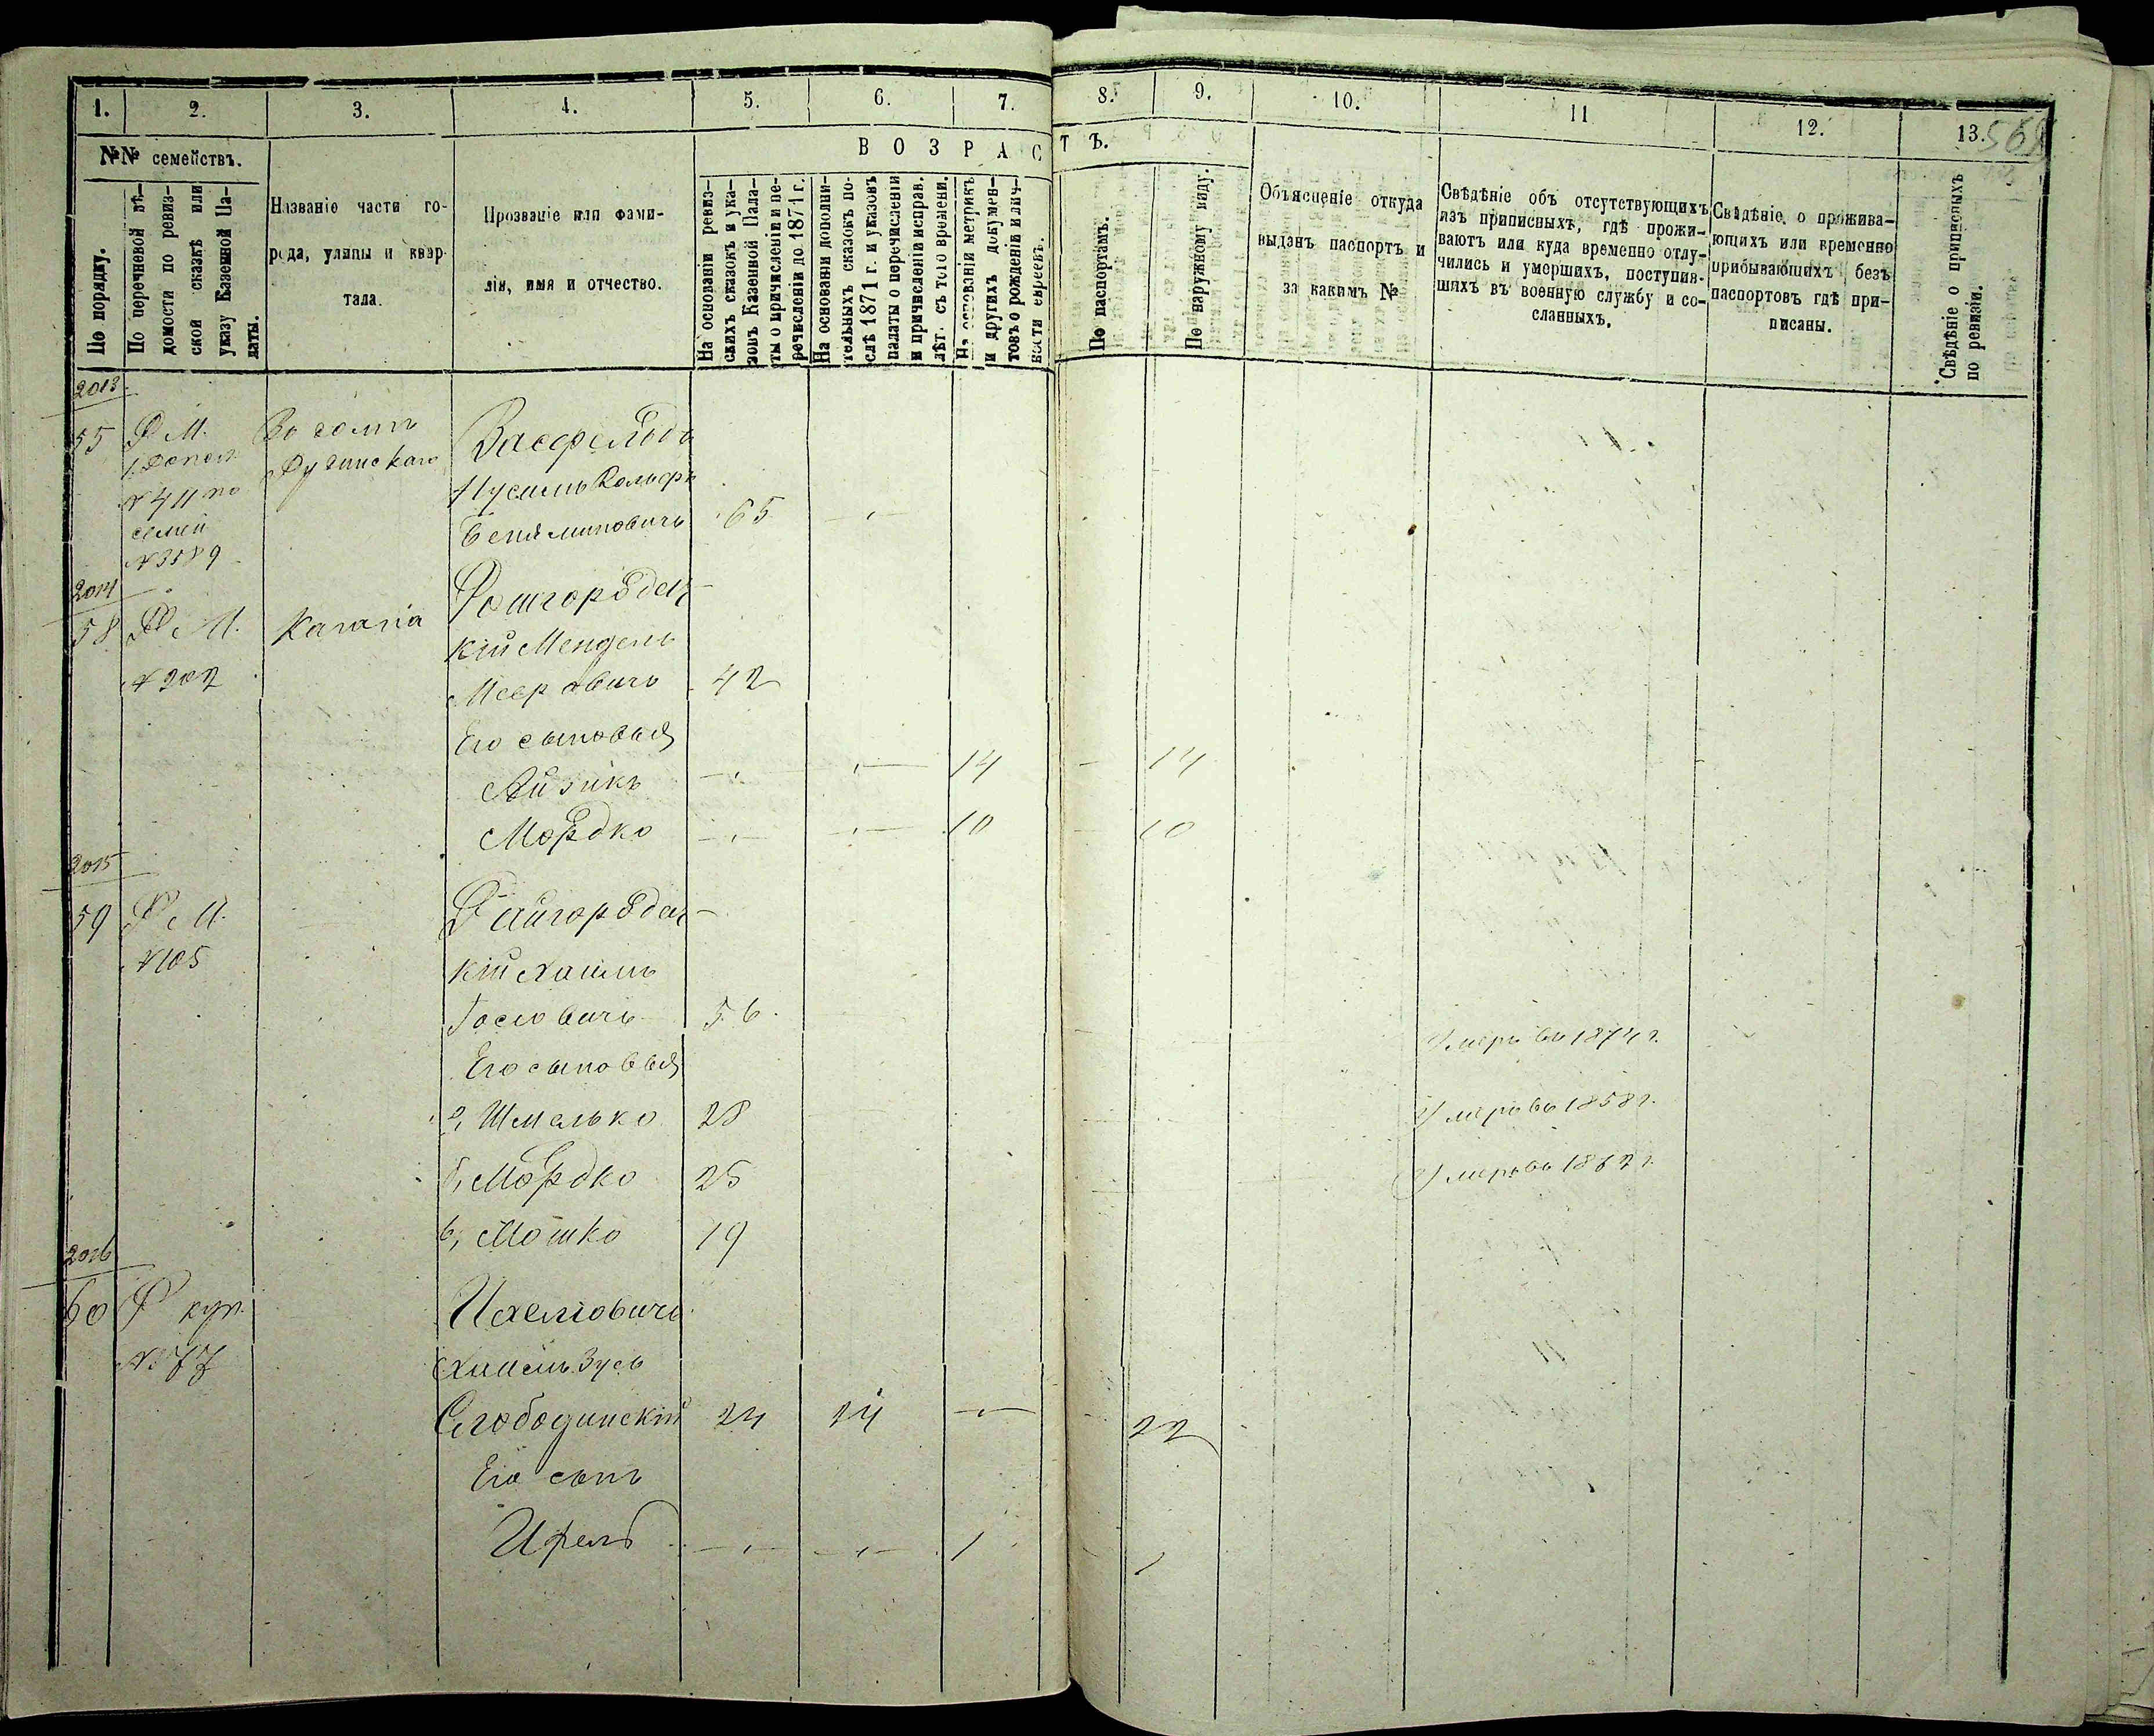 1. 2. 3. 4. 5. 6. 7. 8. 9. 10. 11 12. 13. 56
№№ семействъ.
По порядку.
По перечневой вѣ-
домости по ревиз-
ской сказкѣ или
указу Казенной Па-
латы.
Названіе части го-
рода, улицы и квар-
тала.
Прозваніе или фами-
лія, имя и отчество.
ВОЗРАСТЪ.
На основаніи ревиз-
скихъ сказокъ и ука-
зовъ Казенной Пала-
ты о причисленіи и пе-
речисленіи до 1871 г.
На основаніи дополни-
тельныхъ сказокъ по-
слѣ 1871 г. и указовъ
палаты о перечисленіи
и причисленіи исправ.
лѣт. съ того времени.
На основаніи метрикъ
и другихъ докумен-
товъ о рожденіи и лич-
ности евреевъ.
По паспортамъ.
По наружному виду.
Объясненіе откуда
выданъ паспортъ и
за какимъ №
Свѣдѣніе объ отсутствующихъ
изъ приписныхъ, гдѣ прожи-
ваютъ или куда временно отлу-
чились и умершихъ, поступив-
шихъ въ военную службу и со-
сланныхъ.
Свѣдѣніе о прожива-
ющихъ или временно
прибывающихъ безъ
паспортовъ гдѣ при-
писаны.
Свѣдѣніе о приписныхъ
по ревизіи.
2013
55 Р М. Во домѣ Вассфельдъ
Нусимъ Вольфъ
№ 411 по
семей
Беняминовичъ 65
№ 3589
2014
58 Р М.
кій Мендель
№ 202 Мееровичъ 42
Его сыновья
Айзикъ 14 14
Мордко 10 10
2015
59 Р М. Райгородец-
№ 105 кій Хаимъ
Іосіовичъ 56. Умеръ въ 1874 г.
Его сыновья
а, Шмелько 28 Умеръ въ 1858 г.
б, Мордко 25 Умеръ въ
в, Мошко 19
2016
60 Р куп.
№ 77 Хаимъ Зусь
Слободинскій 24 24 22
Его сынъ
1 1